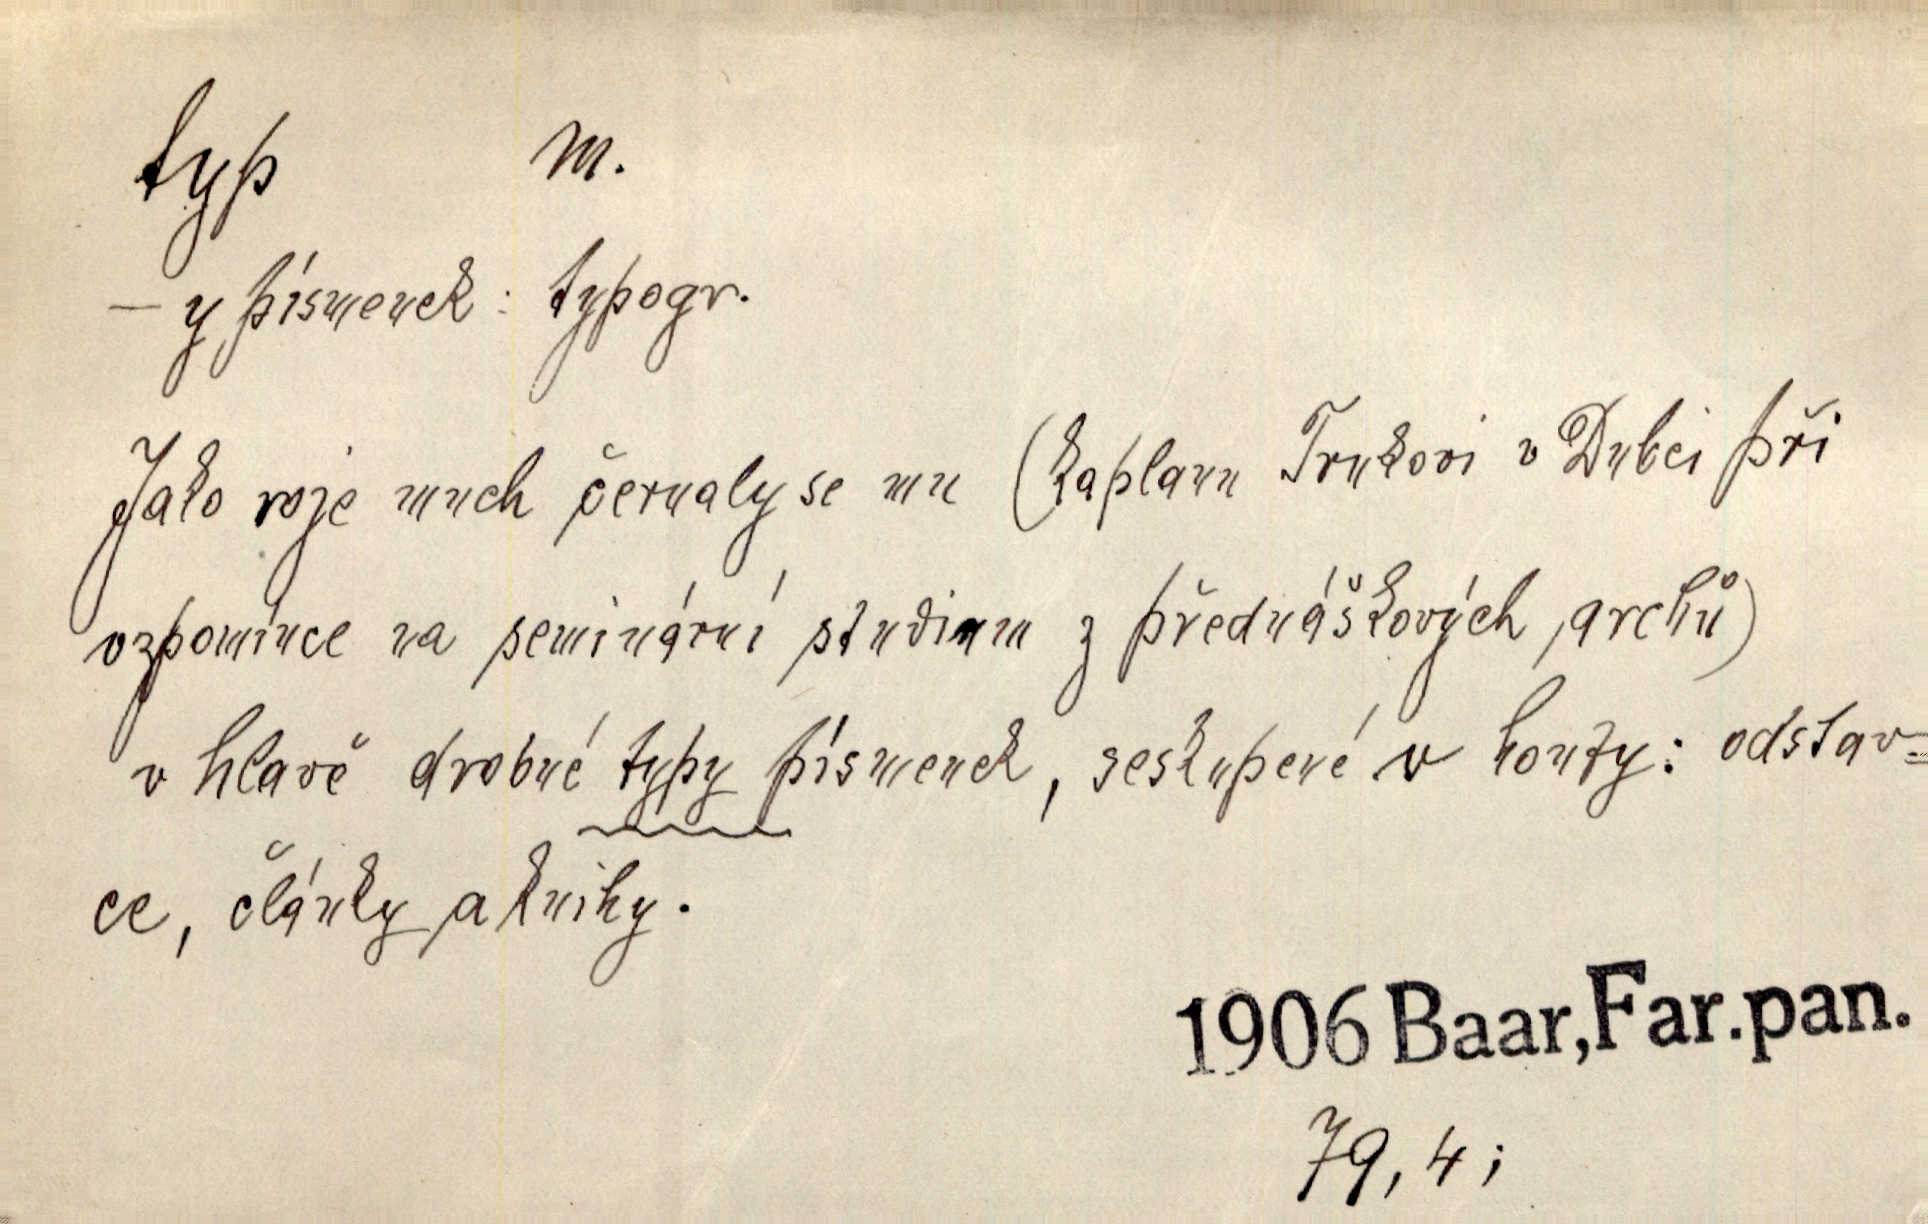 typ m.
– y písmenek : typogr.
Jako roje much černaly se mu (kaplanu Trnkovi v Dubci při
vzpomínce na seminární studium z přednáškových archů)
v hlavě drobné typy písmenek, seskupené v houfy: odstav=
ce, články a knihy.
1906 Baar, Far. pan.
79, 4;